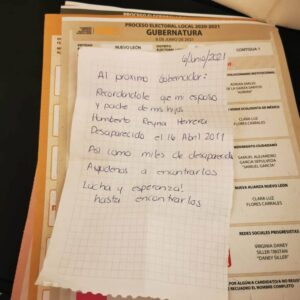 PROCESO ELECTORAL LOCAL 2020-2021
GUBERNATURA
6 DE JUNIO DE 2021
NUEVO LEÓN
CONTIGUA 1
6/Junio/2021
Al próximo Gobernador:
Recordandole que mi esposo
y padre de mis hijos
Humberto Reyna Herrera
Desaparecido el 16 Abril 2011
Así como miles de desaparecidos
Ayúdenos a encontrarlos
Lucha y esperanza!
hasta encontrarlos
ADRIÁN EMILIO
DE LA GARZA SANTOS
CLARA LUZ
FLORES CARRALES
MOVIMIENTO CIUDADANO
SAMUEL ALEJANDRO
GARCÍA SEPÚLVEDA
"SAMUEL GARCÍA"
NUEVA ALIANZA NUEVO LEÓN
CLARA LUZ
FLORES CARRALES
REDES SOCIALES PROGRESISTAS
VIRGINIA DANEY
SILLER TRISTÁN
"DANEY SILLER"
POR ALGÚN CANDIDATO/A NO REGISTRADO
EL NOMBRE COMPLETO